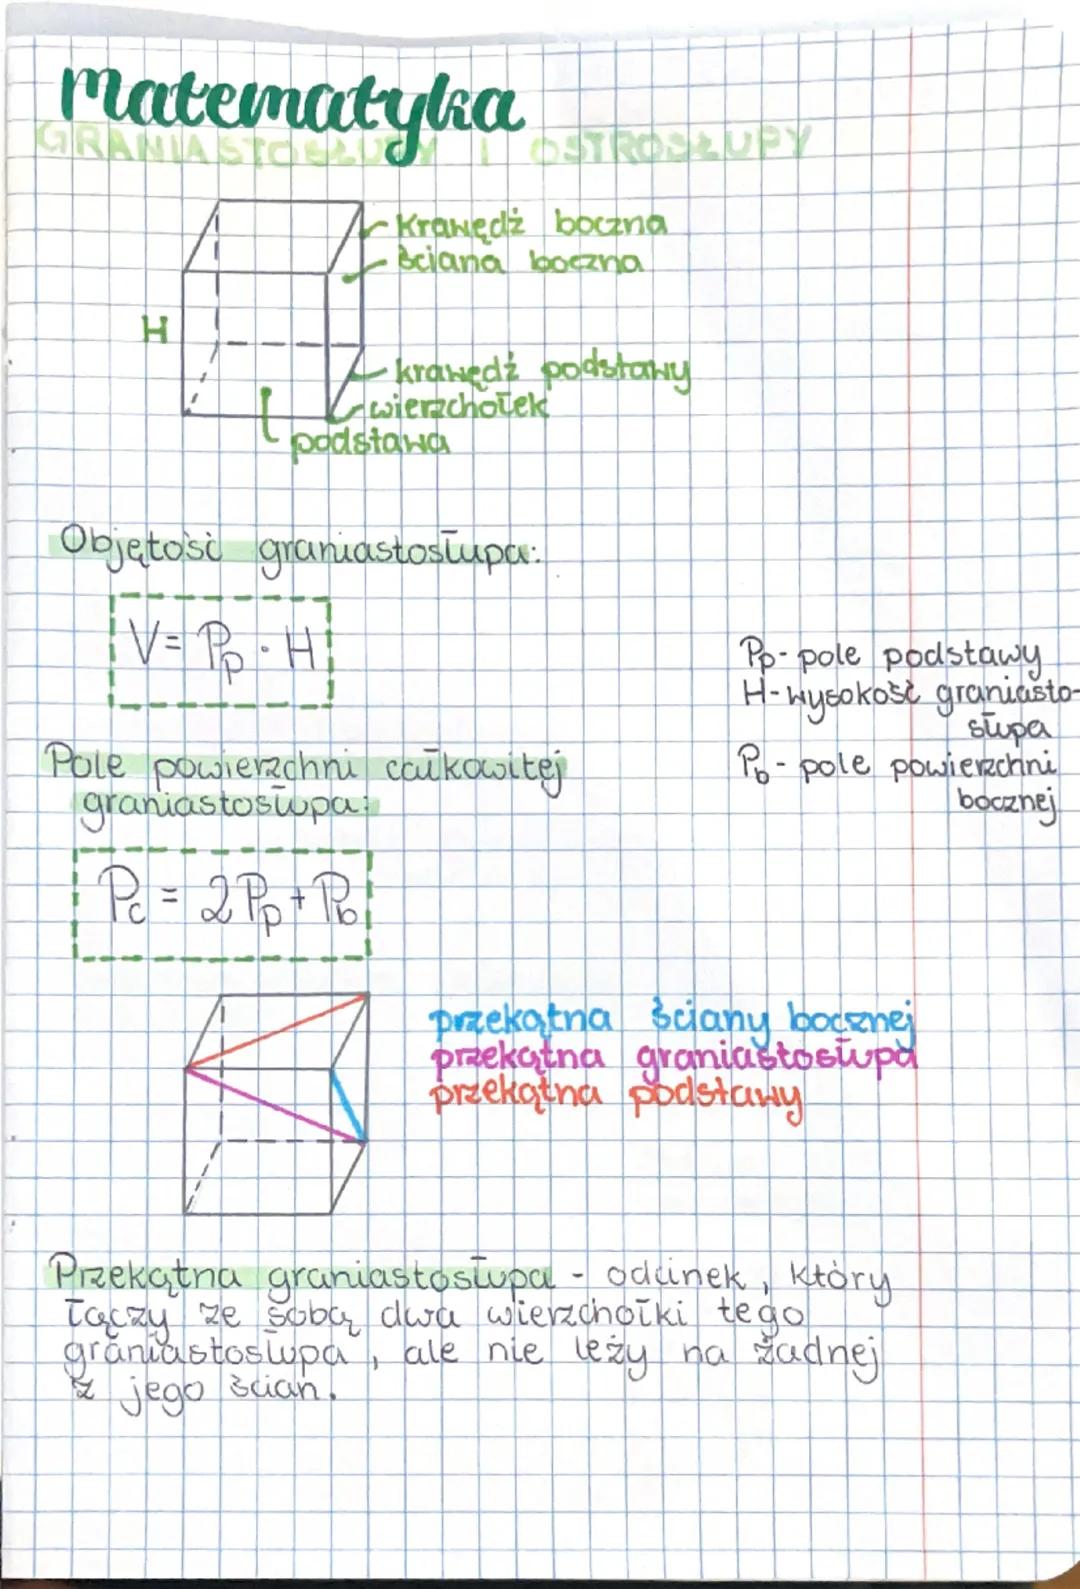 matematyka
GRANIASTOSŁUPY I OSTROSŁUPY
krawędź boczna
ściana boczna
H
krawędź podstawy
wierzchołek
podstawa
Objętość graniastosłupa:
V = Pp · H
Pp - pole podstawy
H - wysokość graniasto-
słupa
Pole powierzchni całkowitej
graniastosłupa:
Pb - pole powierzchni
bocznej
Pc = 2Pp + Pb
przekątna ściany bocznej
przekątna graniastosłupa
przekątna podstawy
Przekątna graniastosłupa - odcinek, który
łączy ze sobą dwa wierzchołki tego
graniastosłupa, ale nie leży na żadnej
z jego ścian.